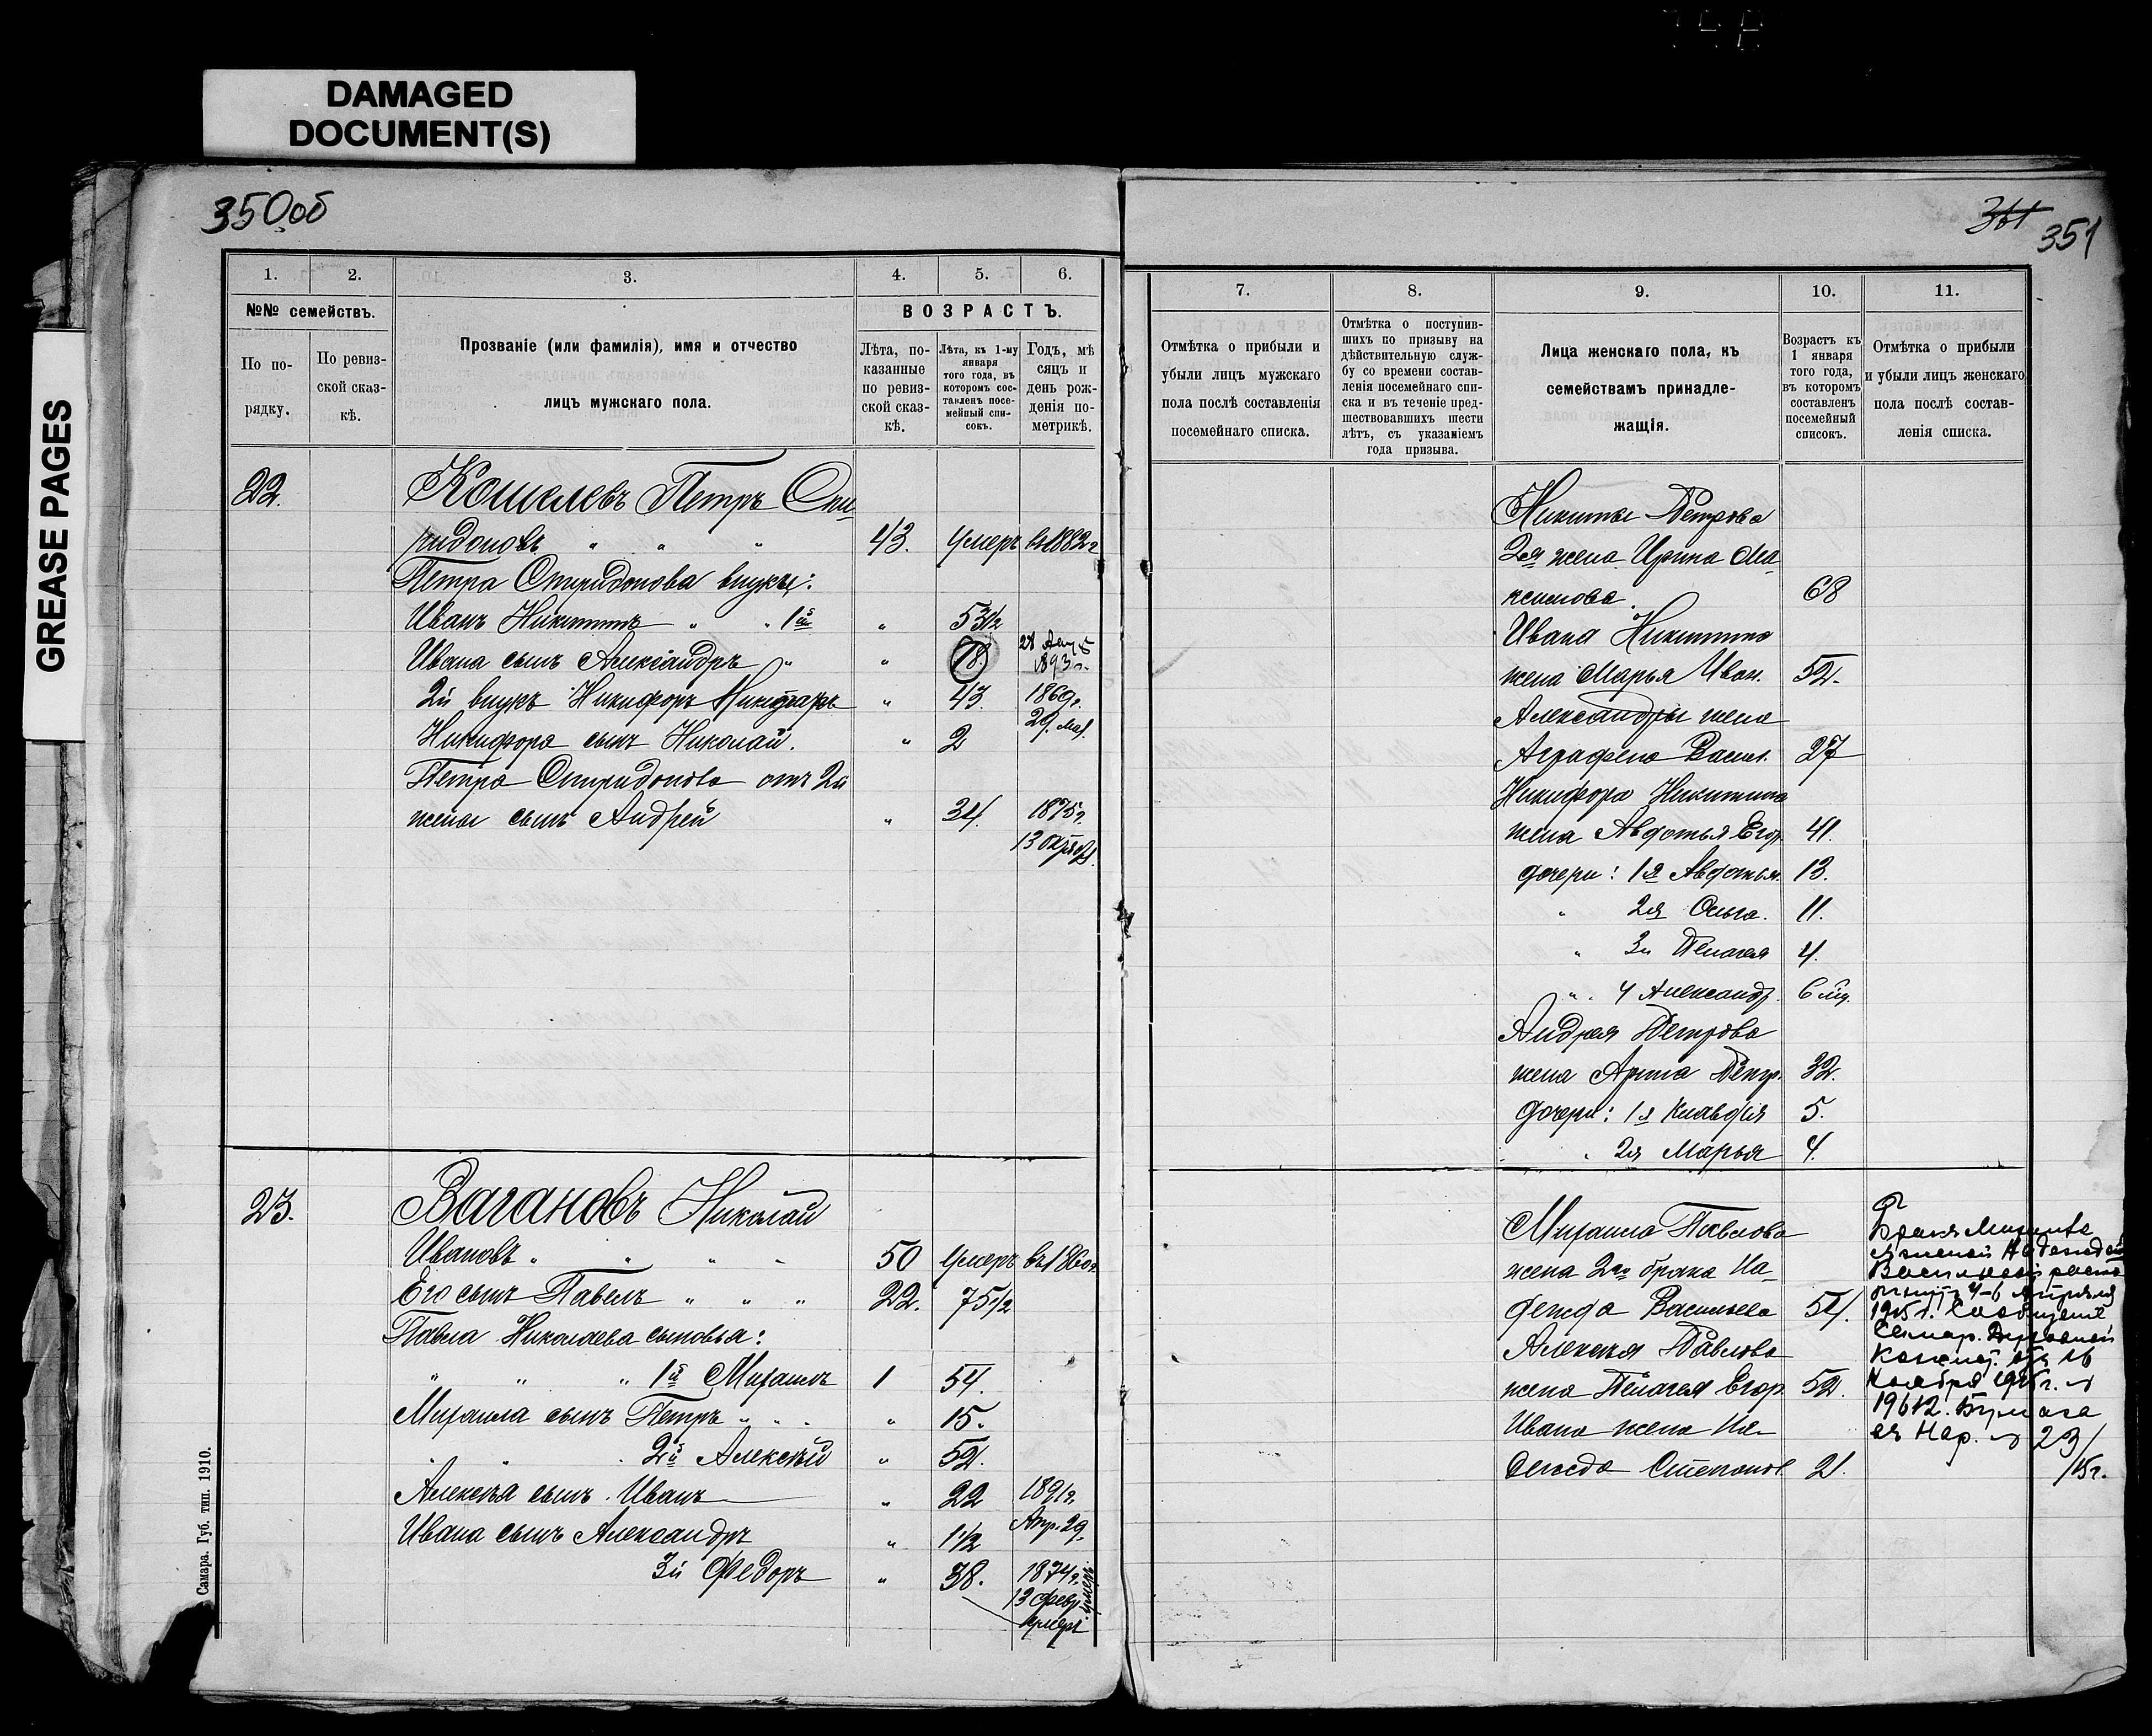 DAMAGED
DOCUMENT(S)
GREASE PAGES
350об
351
1.
2.
3.
4.
5.
6.
№№ семействъ.
ВОЗРАСТЪ.
По по-
рядку.
По ревиз-
ской сказ-
кѣ.
Прозваніе (или фамилія), имя и отчество
лицъ мужскаго пола.
Лѣта, по-
казанные
по ревиз-
ской сказ-
кѣ.
Лѣта, къ 1-му
января
того года, въ
которомъ сос-
тавленъ посе-
мейный спи-
сокъ.
Годъ, мѣ
сяцъ и
день рож-
денія по-
метрикѣ.
22.
Кошелевъ Петръ Спи-
ридоновъ " " " 43. умеръ въ 1882 г
Петра Спиридонова внуки:
Иванъ Никитинъ " " 1й " 53 1/2
Ивана сынъ Александръ " " 18 28 1893 г.
2й внукъ Никифоръ " 43. 1869 г.
29.
Никифора сынъ Николай. " 2
Петра Спиридонова отъ 2й
жены сынъ Андрей " 34. 1875 г.
13 октяб.
23.
Вагановъ Николай
Ивановъ " " " " 50 умеръ въ 1860 г.
Его сынъ Павелъ " " " 22. 75 1/2
Павла Николаева сыновья:
" " " 1й Михаилъ 1 54.
Михаила сынъ Петръ " " " " 15.
" " 2й Алексѣй " 52.
Алексѣя сынъ Иванъ " 22 1891 г.
Апр. 29.
Ивана сынъ Александръ " 1 1/2
3й Федоръ " 38. 1874 г.
13 февр.
умеръ
умеръ
Самара. Губ. тип. 1910.
7.
8.
9.
10.
11.
Отмѣтка о прибыли и
убыли лицъ мужскаго
пола послѣ составленія
посемейнаго списка.
Отмѣтка о поступив-
шихъ по призыву на
дѣйствительную служ-
бу со времени состав-
ленія посемейнаго спи-
ска и въ теченіе пред-
шествовавшихъ шести
лѣтъ, съ указаніемъ
года призыва.
Лица женскаго пола, къ
семействамъ принадле-
жащія.
Возрастъ къ
1 января
того года,
въ которомъ
составленъ
посемейный
списокъ.
Отмѣтка о прибыли
и убыли лицъ женскаго
пола послѣ состав-
ленія списка.
Никиты Петрова
2ая жена Ирина Ма-
ксимова. 68
Ивана Никитина
жена Марья Иван. 52.
Александры жена
Аграфена Васил. 27
Никифора Никитина
жена Авдотья Егор. 41.
дочери: 1я Авдотья. 13.
" 2ая Ольга. 11.
" 3я Пелагея 4.
" 4 Александр. 6 мц.
Андрея Петрова
жена Арина Петр. 32.
дочери: 1я Клавдія 5.
" 2ая Марья 4.
Михаила Павлова
жена 2го брака На-
дежда Васильева 54.
Алексѣя Павлова
жена Пелагея Егор. 52.
Ивана жена На-
дежда Степанов. 21.
Бракъ Михаила
съ женой Надеждой
Васильевой расто-
1915 г. Сообщеніе
Самар. Духовной
Консист. отъ 16
Ноября 1915 г. №
19612. Бумага
въ Нар. № 23/
15 г.